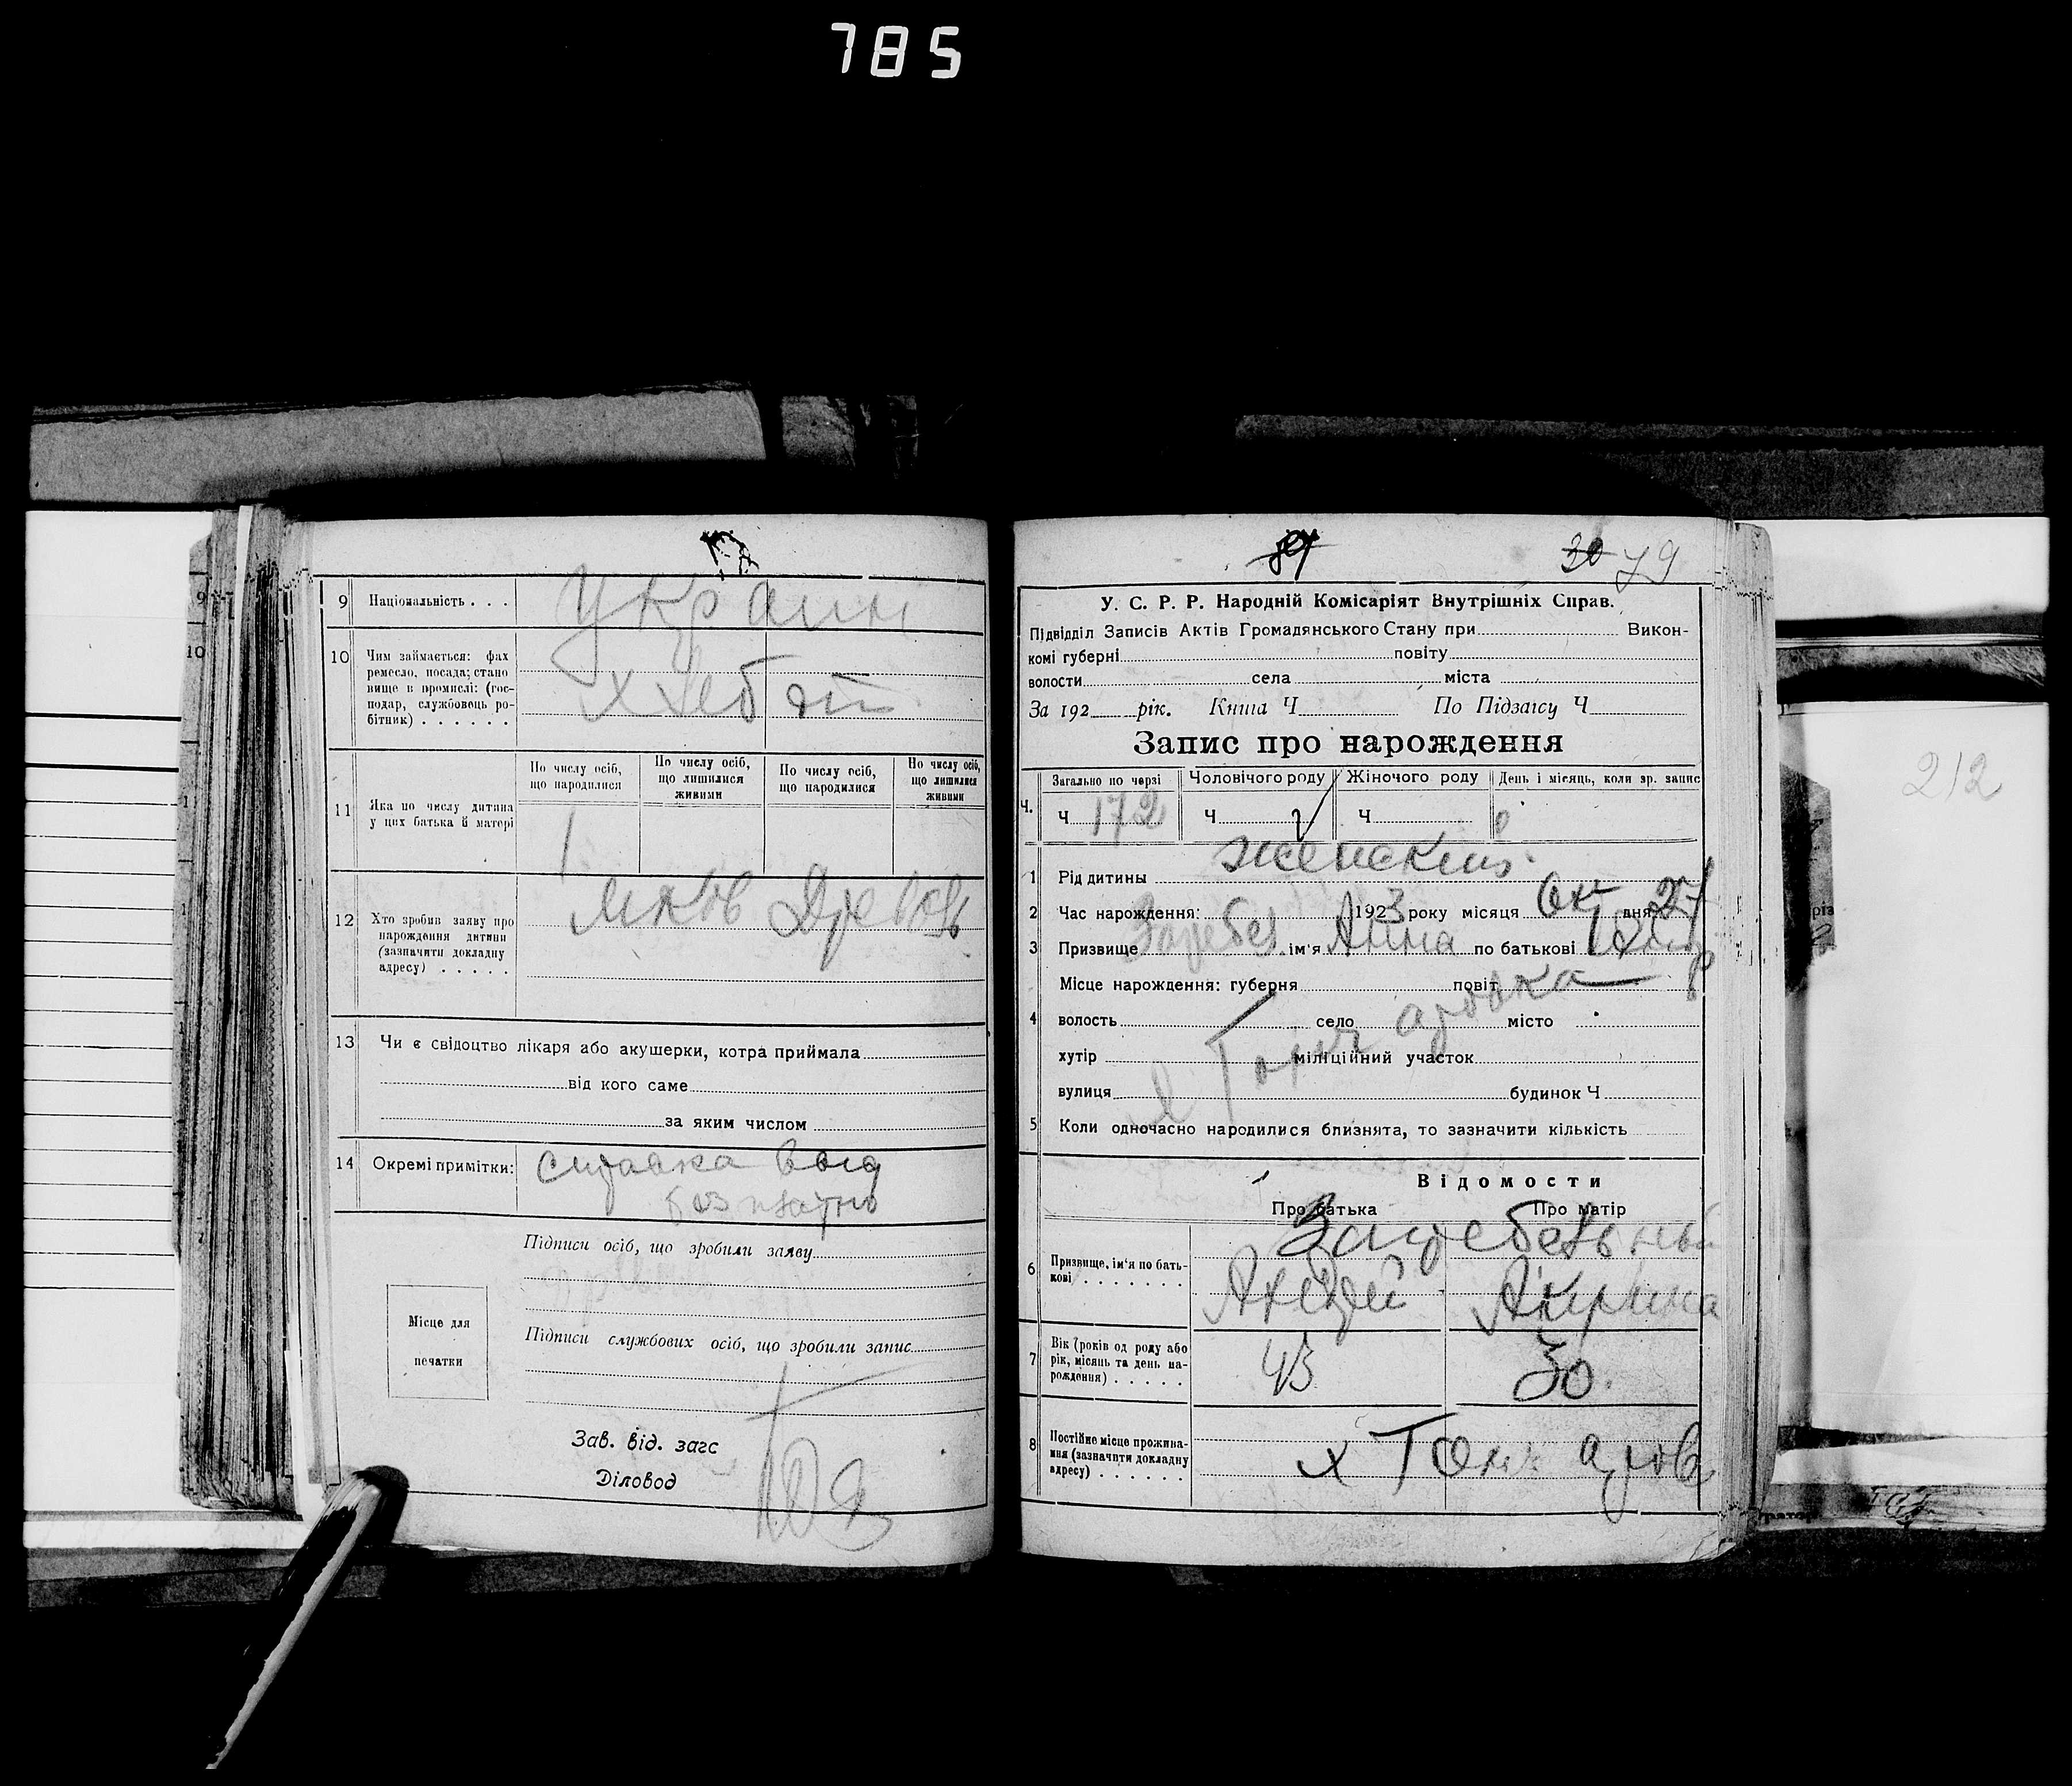 785
9 Національність . . . Украин
10 Чим займається: фах
ремесло, посада; стано
вище в промислі: (гос-
подар, службовець ро-
бітник) . . . . . .
хлеб
11 Яка по числу дитина
у цих батька й матері
По числу осіб,
що народилися
По числу осіб,
що лишилися
живими
По числу осіб,
що народилися
По числу осіб,
що лишилися
живими
1
12 Хто зробив заяву про
нарождення дитини
(зазначити докладну
адресу) . . . . .
13 Чи є свідоцтво лікаря або акушерки, котра приймала
від кого саме
за яким числом
14 Окремі примітки: справка выд
безплатно
Підписи осіб, що зробили заяву
Місце для
печатки
Підписи службових осіб, що зробили запис
Зав. від. загс
Діловод
30 79
У. С. Р. Р. Народній Комісаріят Внутрішніх Справ.
Підвідділ Записів Актів Громадянського Стану при Викон-
комі губерні повіту
волости села міста
За 192 рік. Книга Ч По Підзагсу Ч
Запис про нарождення
Ч.
Загально по черзі Чоловічого роду Жіночого роду День і місяць, коли зр. запис
Ч 172 Ч Ч
1 Рід дитины женский
2 Час нарождення: 1923 року місяця Окт дня 27
3 Призвище ім'я Анна по батькові
Місце нарождення: губерня повіт
4 волость село місто
хутір міліційний участок
вулиця будинок Ч
5 Коли одночасно народилися близнята, то зазначити кількість
Відомости
Про батька Про матір
6 Призвище, ім'я по бать-
кові . . . . . . .
Андрей Акулина
7 Вік (років од роду або
рік, місяць та день на-
рождення) . . . . .
43 30
8 Постійне місце прожива-
ння (зазначити докладну
адресу) . . . . . .
х
212